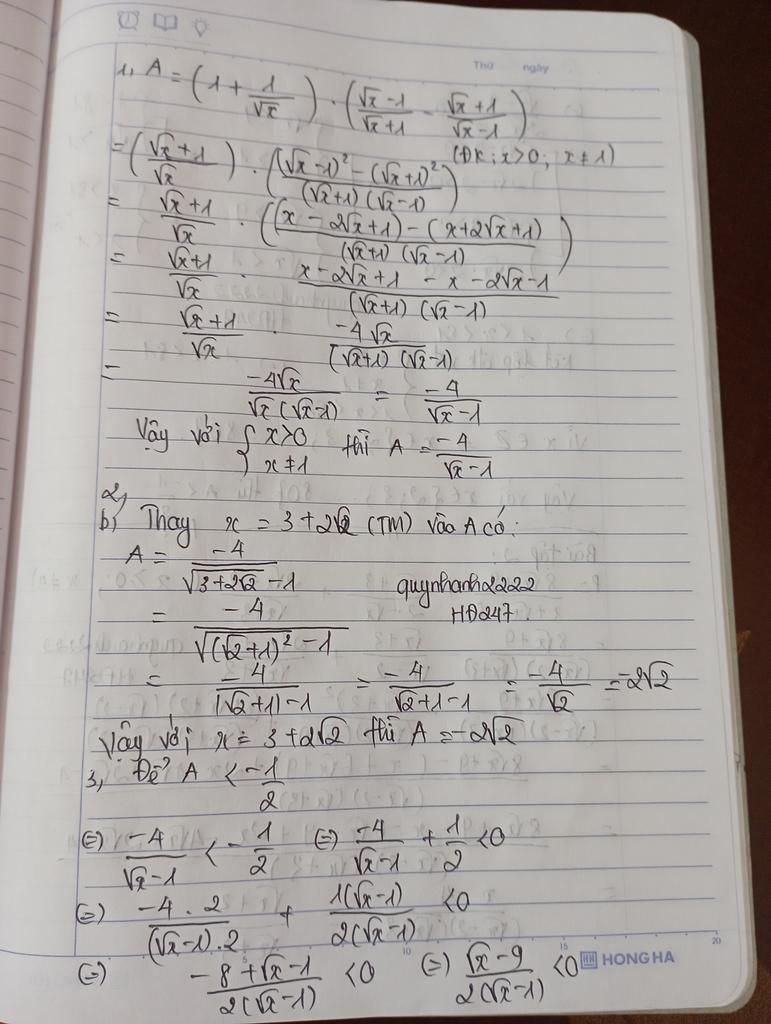 Thứ ngày
1, A = (1 + 1/√x) . ((√x-1)/(√x+1) - (√x+1)/(√x-1))
(ĐK: x>0; x≠1)
= ((√x+1)/√x) . (((√x-1)² - (√x+1)²)/((√x+1)(√x-1)))
= (√x+1)/√x . (((x - 2√x+1) - (x+2√x+1))/((√x+1)(√x-1)))
= (√x+1)/√x . (x-2√x+1 - x - 2√x-1)/((√x+1)(√x-1))
= (√x+1)/√x . (-4√x)/((√x+1)(√x-1))
= (-4√x)/(√x(√x-1)) = (-4)/(√x-1)
Vậy với { x>0 x≠1 thì A = (-4)/(√x-1)
2,
b) Thay x = 3+2√2 (TM) vào A có:
A = (-4)/(√(3+2√2) - 1)
quynhanh2222
HĐ247.
= (-4)/(√((√2+1)²) - 1)
= (-4)/(|√2+1| - 1) = (-4)/(√2+1-1) = (-4)/√2 = -2√2
Vậy với x = 3+2√2 thì A = -2√2
3, Để A < -1/2
(=) (-4)/(√x-1) < -1/2 (=) (-4)/(√x-1) + 1/2 <0
(=) (-4.2)/((√x-1).2) + (1(√x-1))/(2(√x-1)) <0
(=) (-8+√x-1)/(2(√x-1)) <0 (=) (√x-9)/(2(√x-1)) <0
5 10 15 20
HH HONG HA